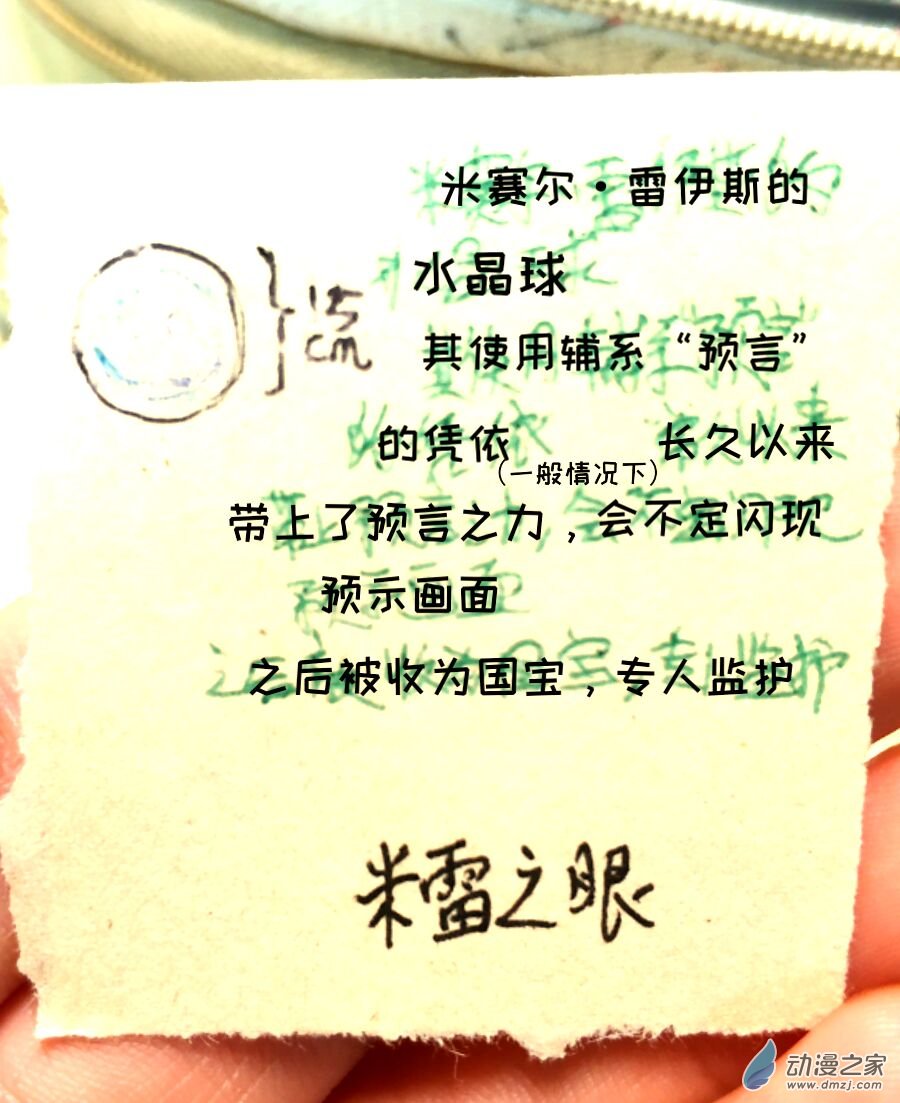 米赛尔·雷伊斯的
水晶球
15
cm
其使用辅系“预言”
的凭依 长久以来
（一般情况下）
带上了预言之力，会不定闪现
预示画面
之后被收为国宝，专人监护
米雷之眼
动漫之家
www.dmzj.com